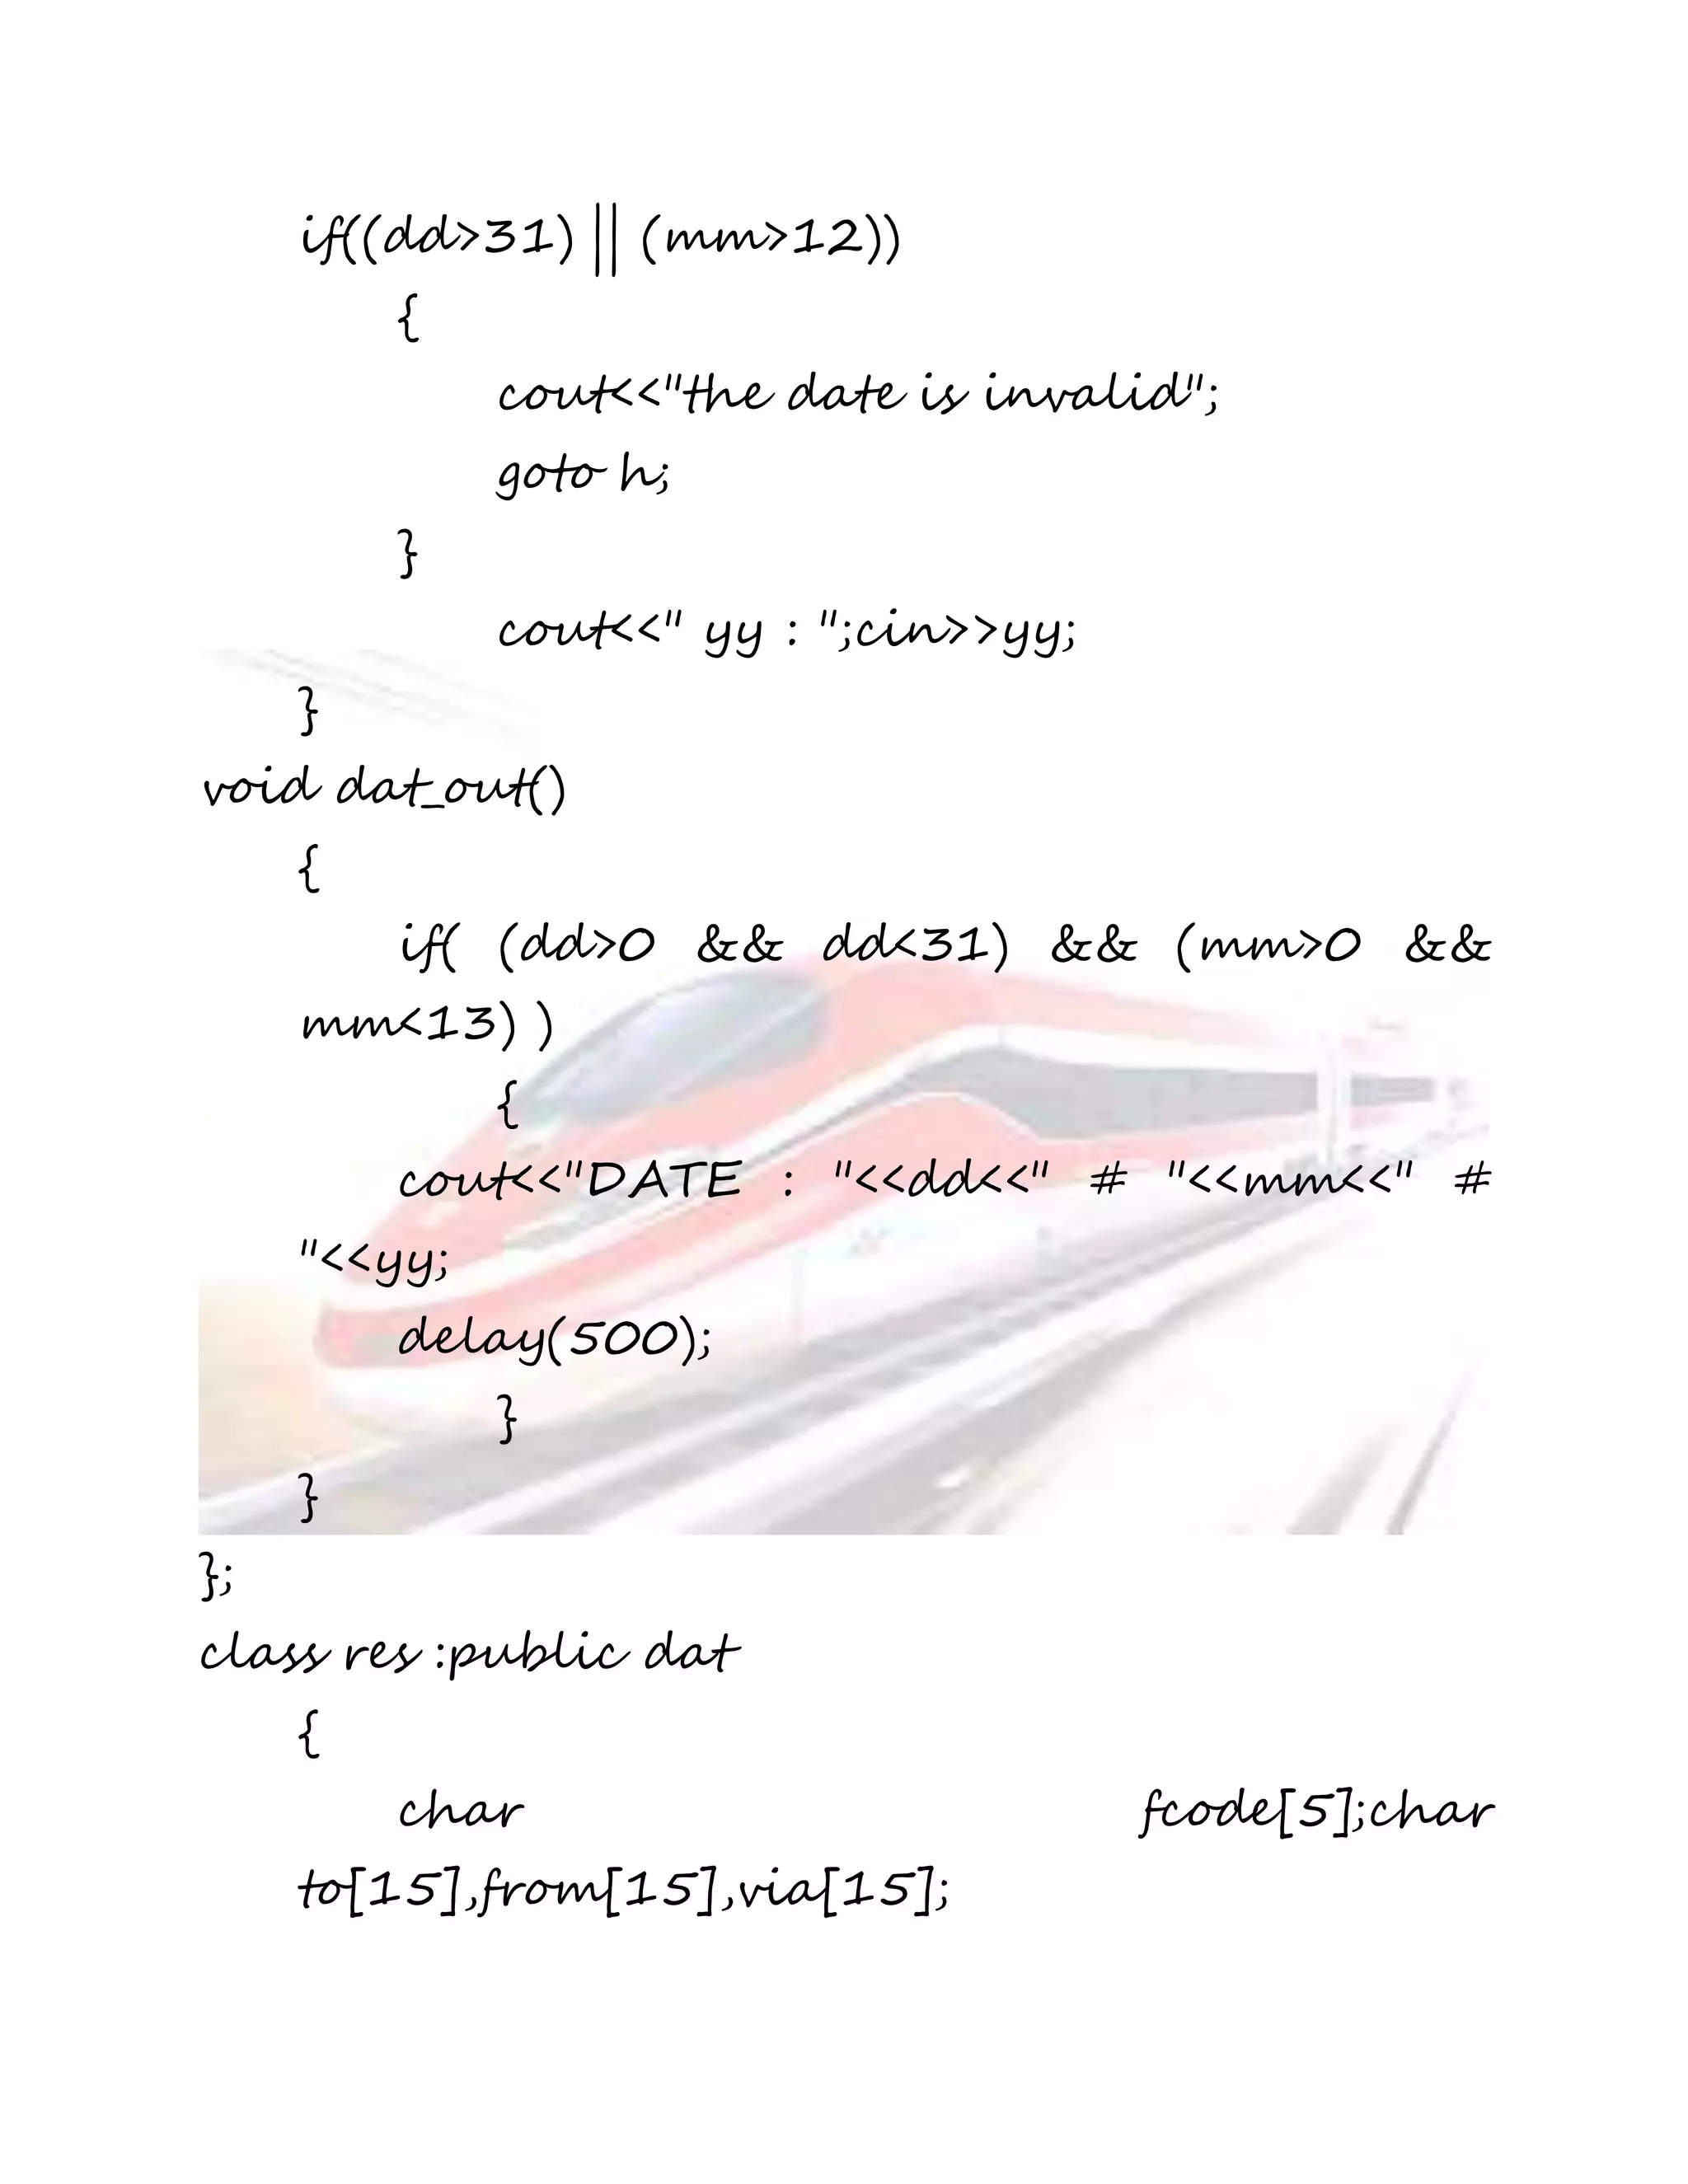 if((dd>31) || (mm>12))
{
cout<<"the date is invalid";
goto h;
}
cout<<" yy : ";cin>>yy;
}
void dat_out()
{
if( (dd>0 && dd<31) && (mm>0 &&
mm<13) )
{
cout<<"DATE : "<<dd<<" # "<<mm<<" #
"<<yy;
delay(500);
}
}
};
class res :public dat
{
char fcode[5];char
to[15],from[15],via[15];